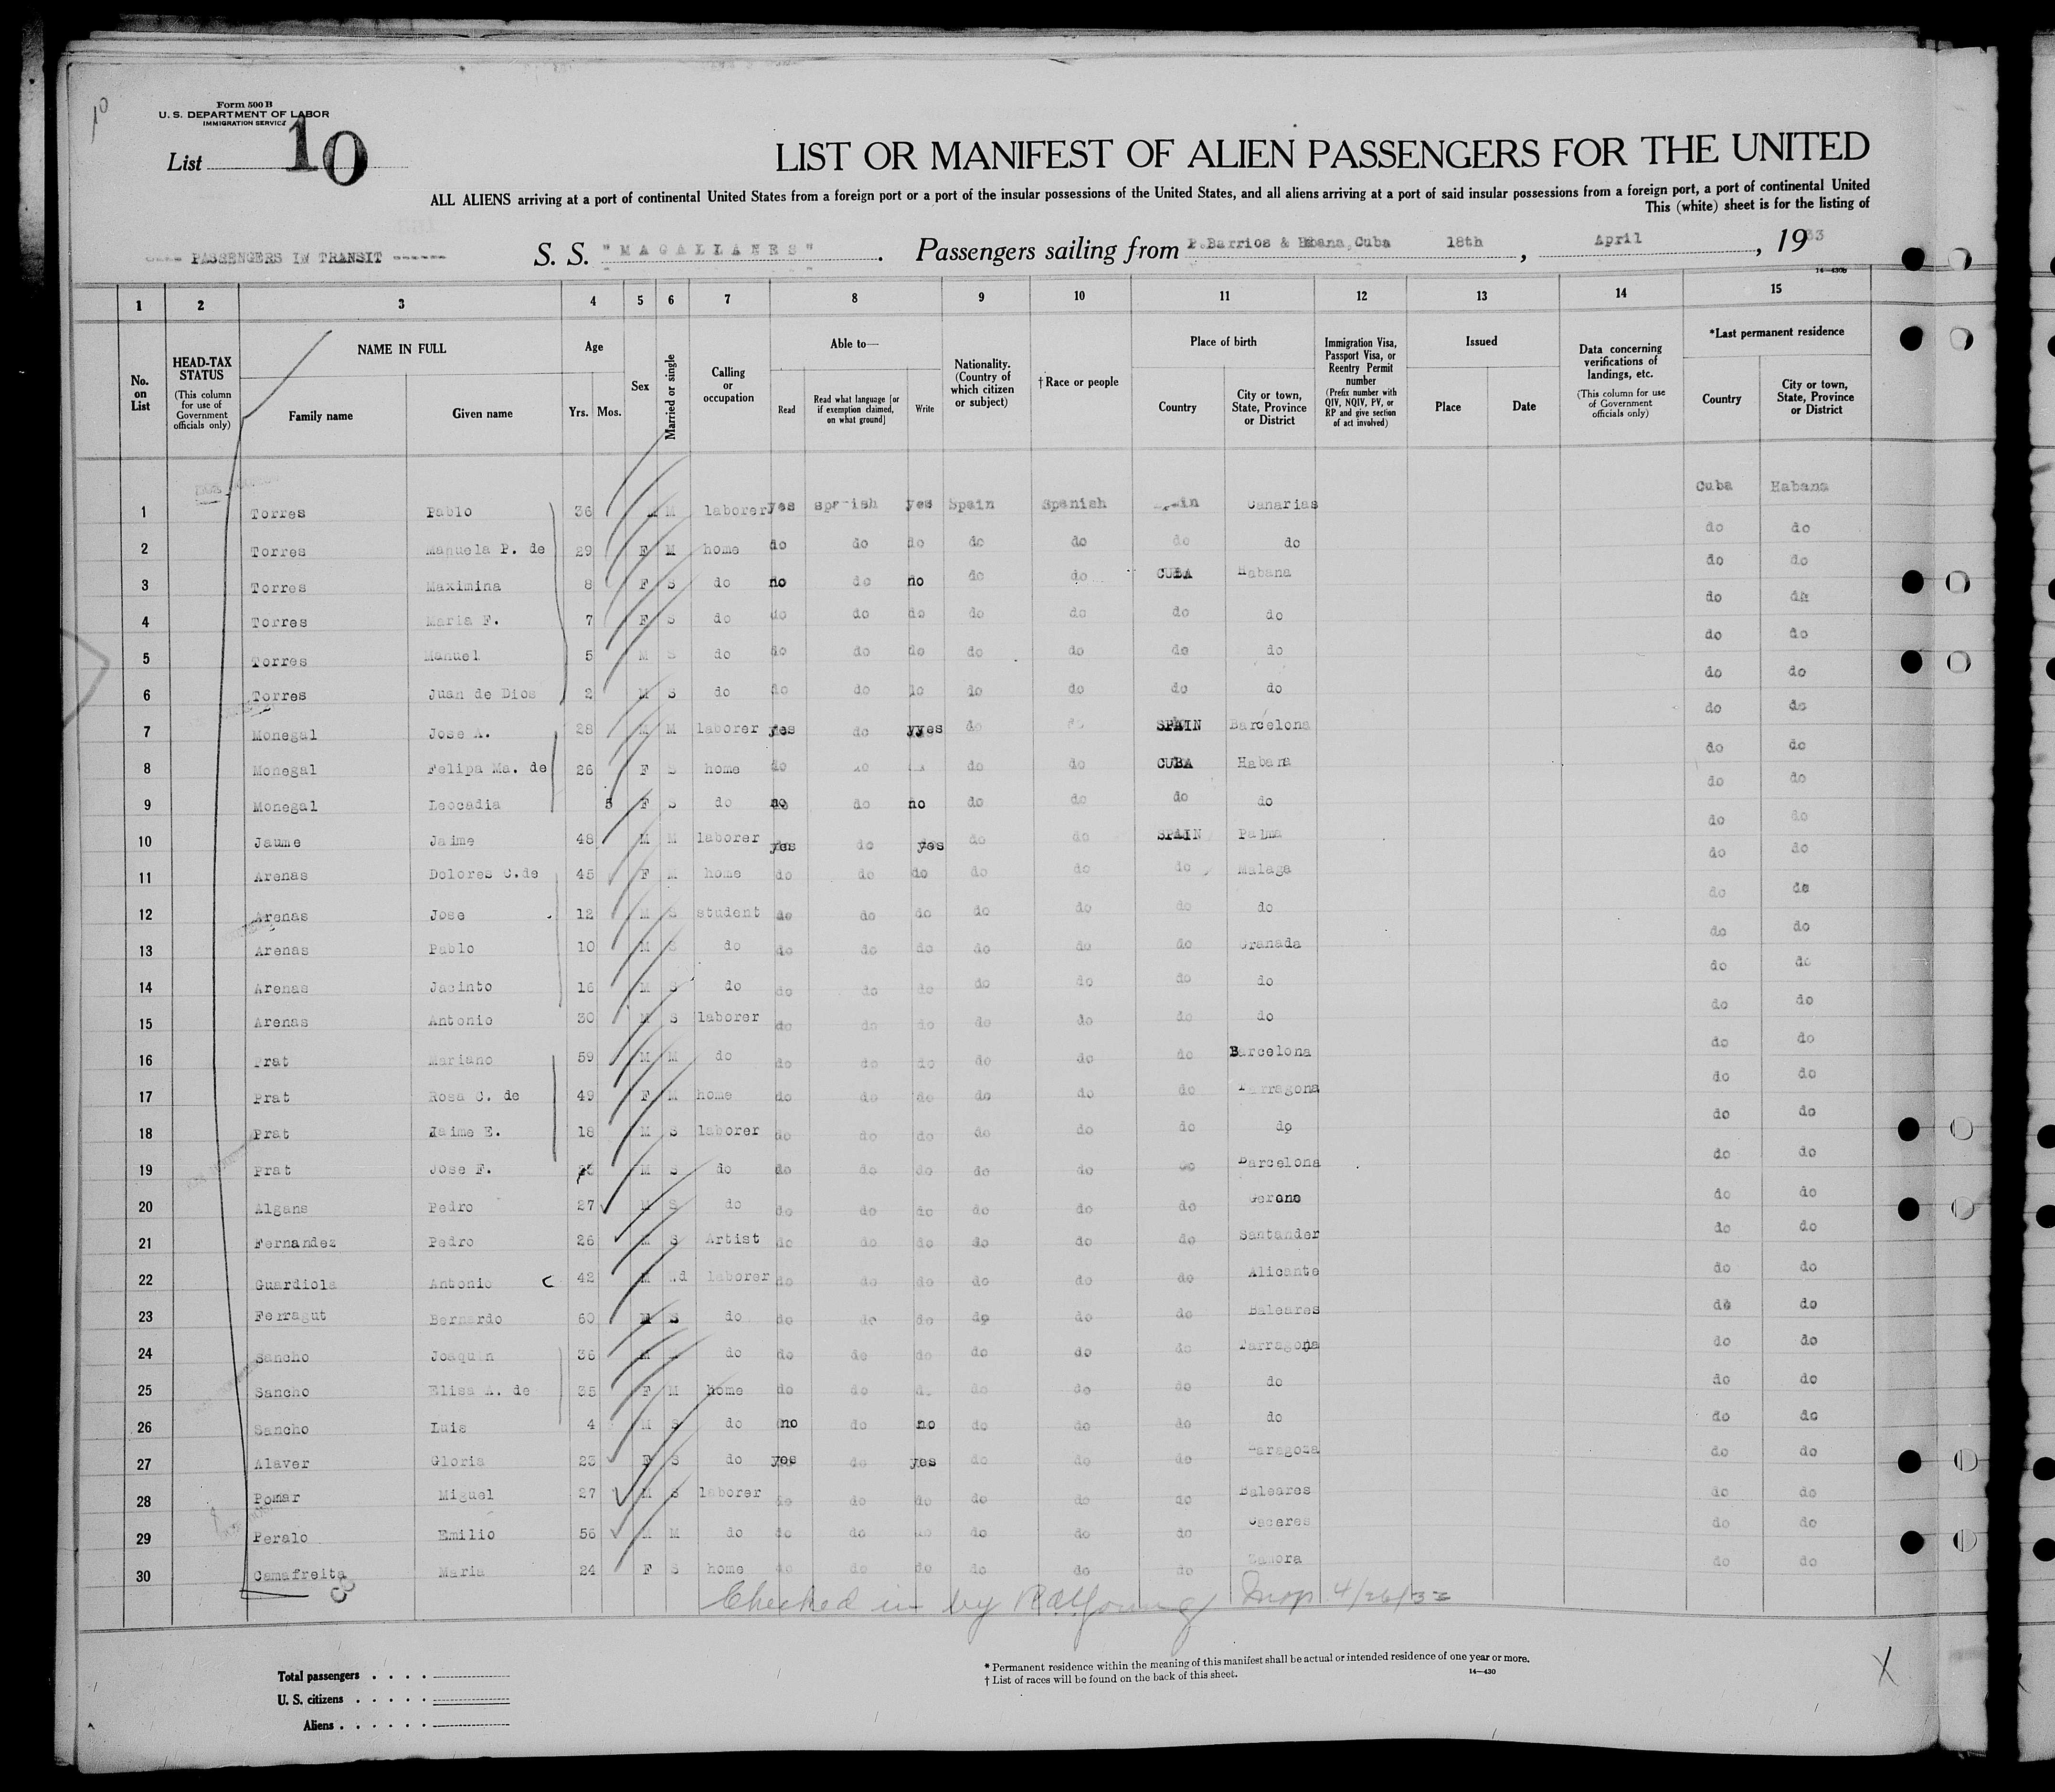 10
Form 500 B
U. S. DEPARTMENT OF LABOR
IMMIGRATION SERVICE
List 10
LIST OR MANIFEST OF ALIEN PASSENGERS FOR THE UNITED
ALL ALIENS arriving at a port of continental United States from a foreign port or a port of the insular possessions of the United States, and all aliens arriving at a port of said insular possessions from a foreign port, a port of continental United
This (white) sheet is for the listing of
PASSENGERS IN TRANSIT ------ S. S. "MAGALLANES". Passengers sailing from P.Barrios & Habana, Cuba 18th, April, 1933
14—430B
1 2 3 4 5 6 7 8 9 10 11 12 13 14 15
No. on List
HEAD-TAX STATUS (This column for use of Government officials only)
NAME IN FULL Family name Given name
Age Yrs. Mos.
Sex
Married or single
Calling or occupation
Able to— Read Read what language [or if exemption claimed, on what ground] Write
Nationality. (Country of which citizen or subject)
†Race or people
Place of birth Country City or town, State, Province or District
Immigration Visa, Passport Visa, or Reentry Permit number (Prefix number with QIV, NQIV, PV, or RP and give section of act involved)
Issued Place Date
Data concerning verifications of landings, etc. (This column for use of Government officials only)
*Last permanent residence Country City or town, State, Province or District
1 Torres Pablo 36 M M laborer yes spanish yes Spain Spanish Spain Canarias Cuba Habana
2 Torres Manuela P. de 29 F M home do do do do do do do do do
3 Torres Maximina 8 F S do no do no do do CUBA Habana do do
4 Torres Maria F. 7 F S do do do do do do do do do do
5 Torres Manuel 5 M S do do do do do do do do do do
6 Torres Juan de Dios 2 M S do do do do do do do do do do
7 Monegal Jose A. 28 M M laborer yes do yyes do do SPAIN Barcelona do do
8 Monegal Felipa Ma. de 26 F S home do do do do CUBA Habana do do
9 Monegal Leocadia 5 F S do no do no do do do do do do
10 Jaume Jaime 48 M M laborer yes do yes do do SPAIN Palma do do
11 Arenas Dolores C.de 45 F M home do do do do do do Malaga do do
12 Arenas Jose 12 M S student do do do do do do do do do
13 Arenas Pablo 10 M S do do do do do do do Granada do do
14 Arenas Jacinto 16 M S do do do do do do do do do do
15 Arenas Antonio 30 M S laborer do do do do do do do do do
16 Prat Mariano 59 M M do do do do do do do Barcelona do do
17 Prat Rosa C. de 49 F M home do do do do do do Tarragona do do
18 Prat Jaime E. 18 M S laborer do do do do do do do do do
19 Prat Jose F. M S do do do do do do do Barcelona do do
20 Algans Pedro 27 M S do do do do do do do Gerona do do
21 Fernandez Pedro 26 M S Artist do do do do do do Santander do do
22 Guardiola Antonio 42 M laborer do do do do do do Alicante do do
23 Ferragut Bernardo 60 M S do do do do do do do Baleares do do
24 Sancho Joaquin 36 M do do do do do do do Tarragona do do
25 Sancho Elisa A. de 35 F M home do do do do do do do do do
26 Sancho Luis 4 M S do no do no do do do do do do
27 Alaver Gloria 23 F S do yes do yes do do do Zaragoza do do
28 Pomar Miguel 27 M S laborer do do do do do do Baleares do do
29 Peralo Emilio 56 M M do do do do do do do Caceres do do
30 Camafreita Maria 24 F S home do do do do do do Zamora do do
Checked in by Insp. 4/26/33
Total passengers
U. S. citizens
Aliens
* Permanent residence within the meaning of this manifest shall be actual or intended residence of one year or more.
† List of races will be found on the back of this sheet.
14—430
X